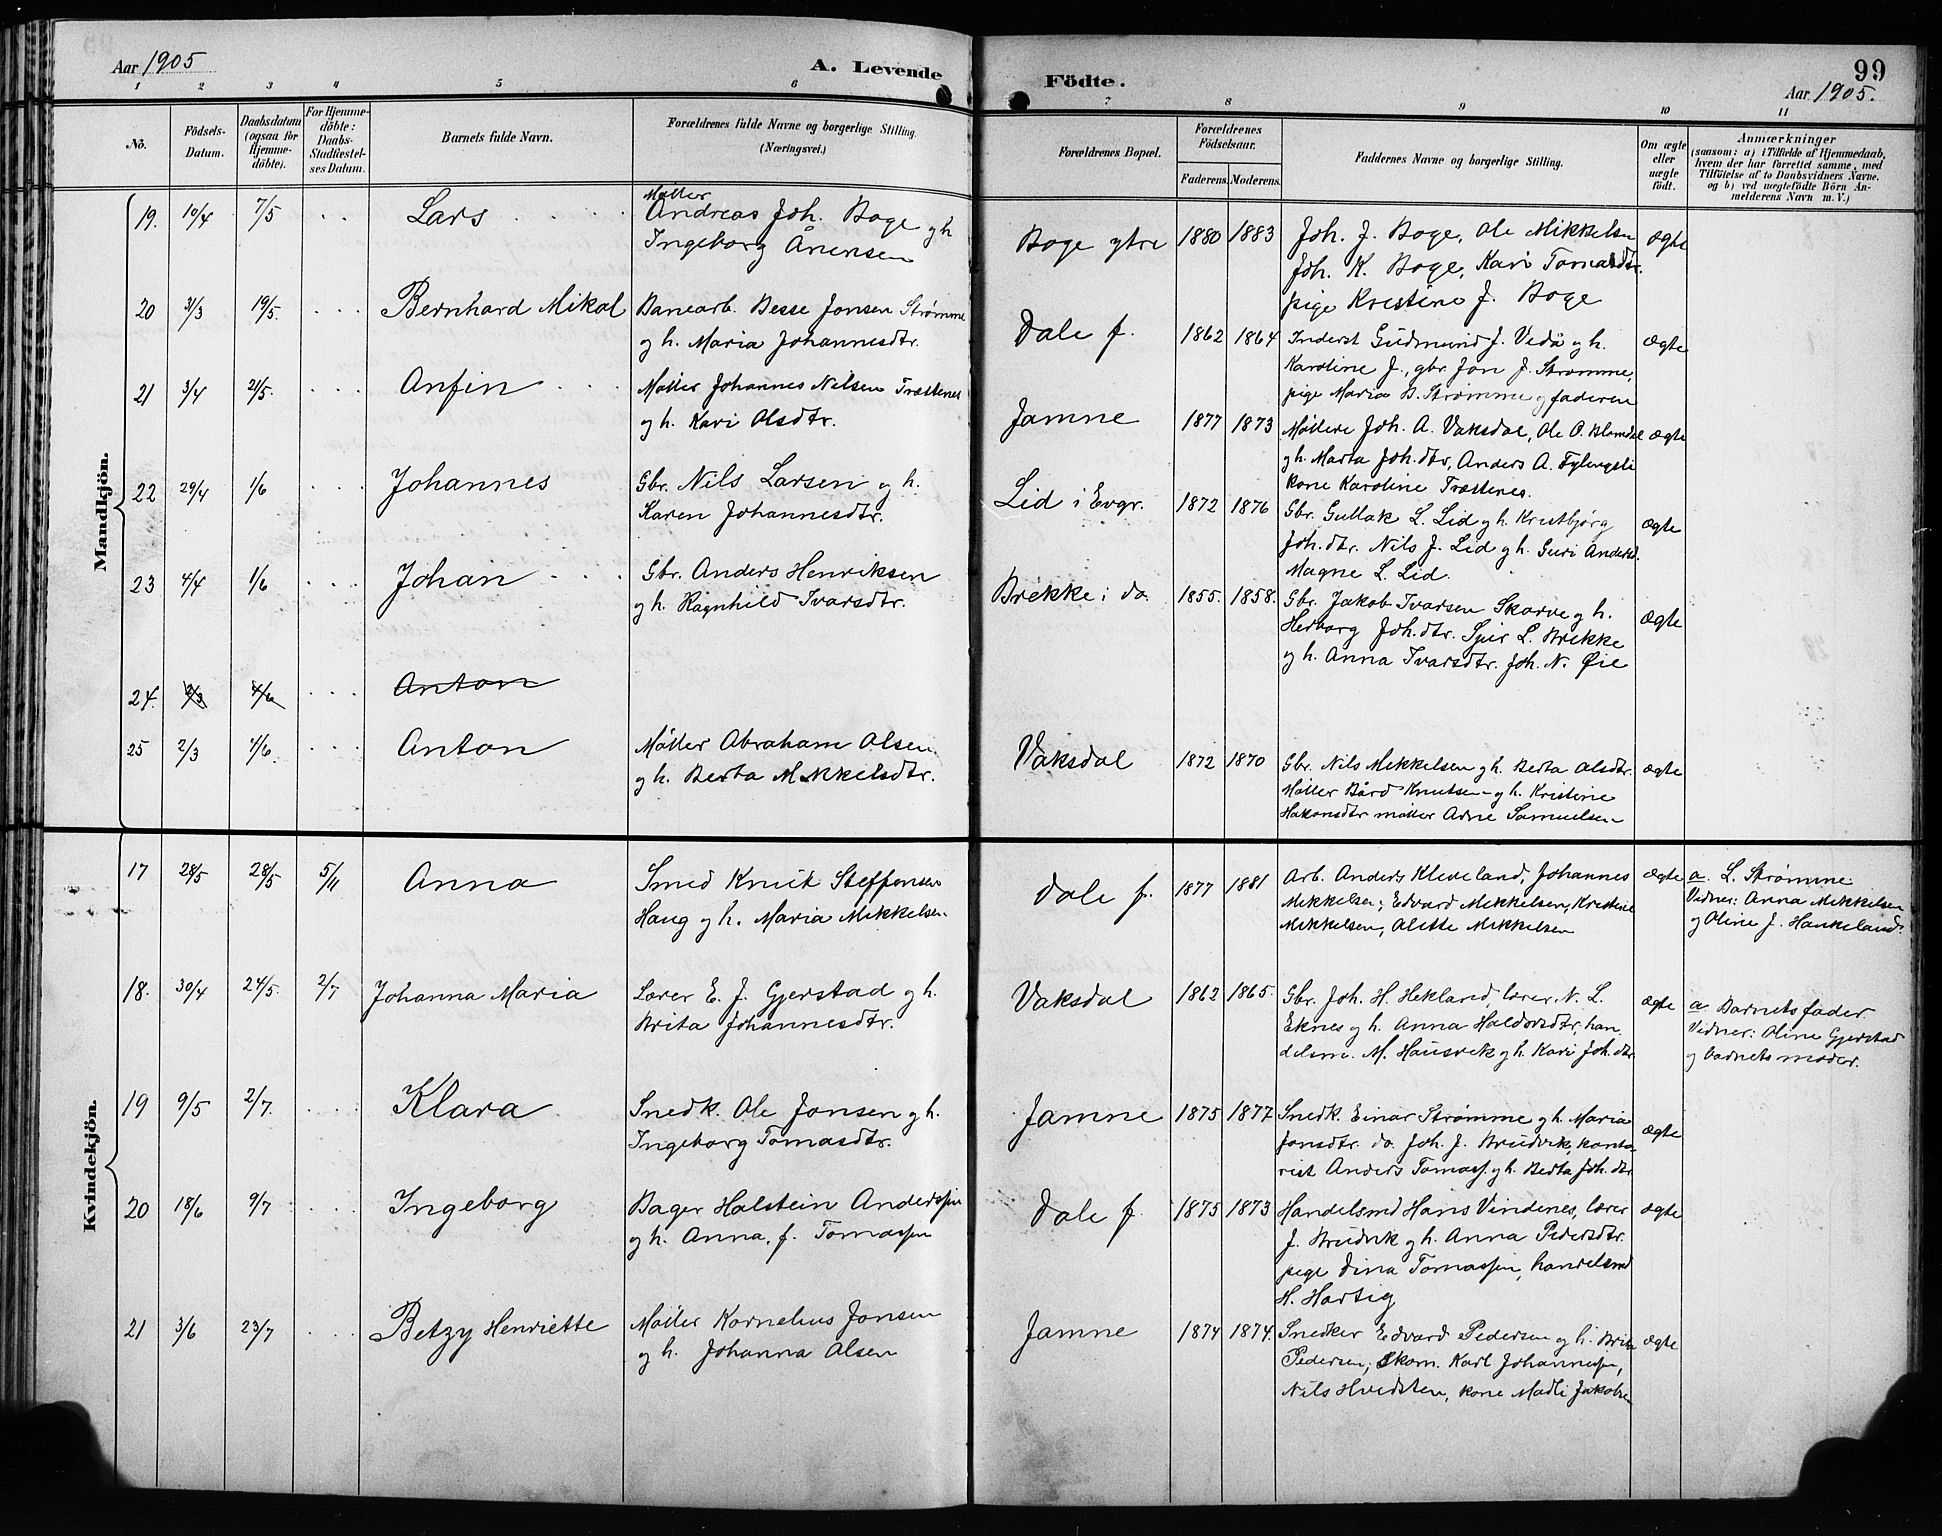 Aar 1905
A. Levende
Födte.
99
Aar 1905.
1 2 3 4 5 6 7 8 9 10 11
No.
Födsels-Datum.
Daabsdatum (ogsaa for Hjemmedöbte).
For Hjemmedöbte: Daabs-Stadfæstelses Datum.
Barnets fulde Navn.
Forældrenes fulde Navne og borgerlige Stilling. (Næringsvei.)
Forældrenes Bopæl.
Forældrenes Födselsaar.
Faderens. Moderens.
Faddernes Navne og borgerlige Stilling.
Om ægte eller uægte födt.
Anmærkninger
(saasom: a) i Tilfælde af Hjemmedaab,
hvem der har forrettet samme, med
Tilföielse af to Daabsvidners Navne,
og b) ved uægtefödte Börn Anmelderens Navn m.V.)
Mandkjön.
19. 10/4 7/5 Lars
Møller
Andreas Joh. Boge gh
Ingeborg Ånensen
Boge ytre 1880 1883
Joh. J. Boge, Ole Mikkelsen
Joh. K. Boge, Kari Tomasdtr.
pige Kristine J. Boge
ægte
20 31/3 19/5. Bernhard Mikal
Banearb. Besse Jonsen Strømme
og h. Maria Johannesdtr.
Dale f. 1862 1864
Inderst Gudmund J. Vedå og h.
Karoline J., gbr. Jon J. Strømme,
pige Maria B. Strømme og faderen
ægte
21 3/4 21/5. Anfin
Møller Johannes Nilsen Træstenes
og h. Kari Olsdtr.
Jamne 1877 1873
Møllere Joh. A. Vaksdal, Ole O. Blomdal
gh. Marta Joh.dtr, Anders A. Fylingsli
kone Karoline Træstenes.
ægte
22 29/4 1/6 Johannes
Gbr. Nils Larsen og h.
Karen Johannesdtr.
Lid i Evgr. 1872 1876
Gbr. Gullak L. Lid og h. Kristbjørg
Joh.dtr. Nils J. Lid og h. Guri Andersd.
Magne L. Lid.
ægte
23 4/4 1/6 Johan
Gbr. Anders Henriksen
og h. Ragnhild Ivarsdtr.
Brekke i do. 1855. 1858.
Gbr. Jakob Ivarsen Skarve og h.
Herborg Joh.dtr. Sjur L. Brekke
og h. Anna Ivarsdtr. Joh. N. Øie
ægte
24. 2/3 4/6 Anton
25 2/3 4/6. Anton
Møller Abraham Olsen
og h. Berta Mikkelsdtr.
Vaksdal 1872 1870
Gbr. Nils Mikkelsen gh. Berta Olsdtr.
Møller Bård Knutsen gh. Kristine
Hakonsdtr møller Arne Samuelsen
ægte
Kvindekjön.
17 28/5 28/5 5/11 Anna
Smed Knut Steffensen
Haug og h. Maria Mikkelsen
Dale f. 1877 1881
Arb. Anders Kleveland, Johannes
Mikkelsen, Edvard Mikkelsen, Kristine
Mikkelsen, Alette Mikkelsen
ægte
a. L. Strømme.
Vidner: Anna Mikkelsen
og Oline J. Haukeland.
18. 30/4 24/5. 2/7 Johanna Maria
Lærer E. J. Gjerstad og h.
Brita Johannesdtr.
Vaksdal 1862 1865.
Gbr. Joh. H. Hekland, lærer N. L.
Eknes og h. Anna Haldorsdtr, han
delsm. M. Hausvik og h. Kari Joh.dtr.
ægte
a. Barnets fader.
Vidner: Oline Gjerstad
og barnets moder.
19 9/5 2/7. Klara
Snedk. Ole Jonsen og h.
Ingeborg Tomasdtr.
Jamne 1875 1877
Snedk. Einar Strømme og h. Maria
Jonsdtr. do. Joh. J. Brudvik, konto
rist Anders Tomass. gh. Berta Joh.dtr
ægte
20 18/6 9/7 Ingeborg
Bager Halstein Anderssen
og h. Anna, f. Tomassen
Dale f. 1875 1873
Handelsmd Hans Vindenes, lærer
J. Brudvik og h. Anna Pedersdtr.
pige Dina Tomassen, handelsmd
H. Hartig
ægte
21 3/6 23/7 Betzy Henriette
Møller Kornelius Jonsen
og h. Johanna Olsen
Jamne 1874 1874.
Snedker Edvard Pedersen og h. Brita
Pedersen, Skom. Karl Johannessen,
Nils Hvidsten, kone Madli Jakobsen
ægte